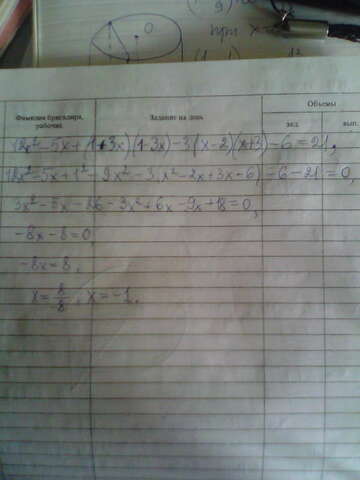 9)
при x
Объемы
Фамилия бригадира, рабочих
Задание на день
зад.
вып.
12x²-5x+(1+3x)(1-3x)-3(x-2)(x+3)-6=21,
12x²-5x+1²-9x²-3(x²-2x+3x-6)-6-21=0,
3x²-5x-26-3x²+6x-9x+18=0,
-8x-8=0,
-8x=8,
x=8/-8, x=-1.